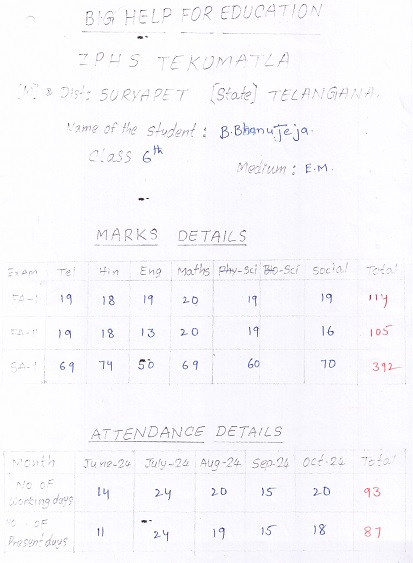 BIG HELP FOR EDUCATION
ZPHS TEKUMATLA
[M] & Dist: SURYAPET [State] TELANGANA.
Name of the student : B.Bhanu Teja.
Class 6th
Medium : E.M.
MARKS DETAILS
Exam Tel Hin Eng Maths Phy-Sci Bio-Sci Social Total
FA-I 19 18 19 20 19 19 114
FA-II 19 18 13 20 19 16 105
SA-I 69 74 50 69 60 70 392
ATTENDANCE DETAILS
Month June-24 July-24 Aug-24 Sep-24 Oct-24 Total
No of
Working days 14 24 20 15 20 93
No. of
Present days 11 24 19 15 18 87